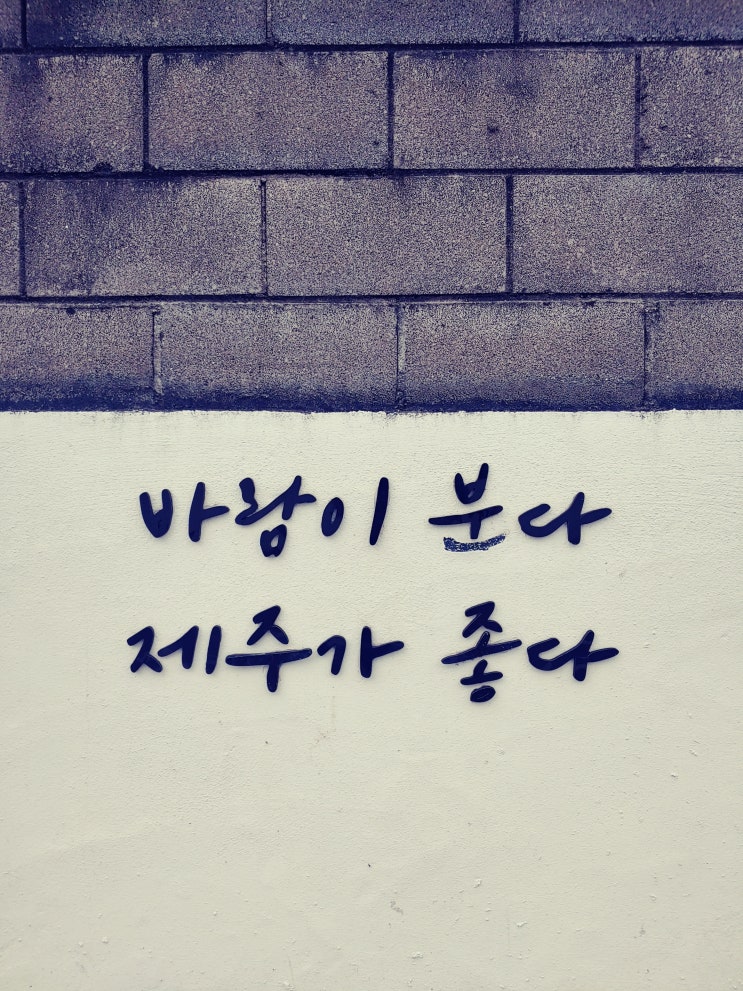 바람이 분다
제주가 좋다